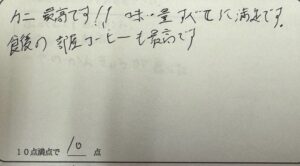 カニ最高です!! 味・量すべてに満足です。
食後の部屋コーヒーも最高です
10点満点で 10 点